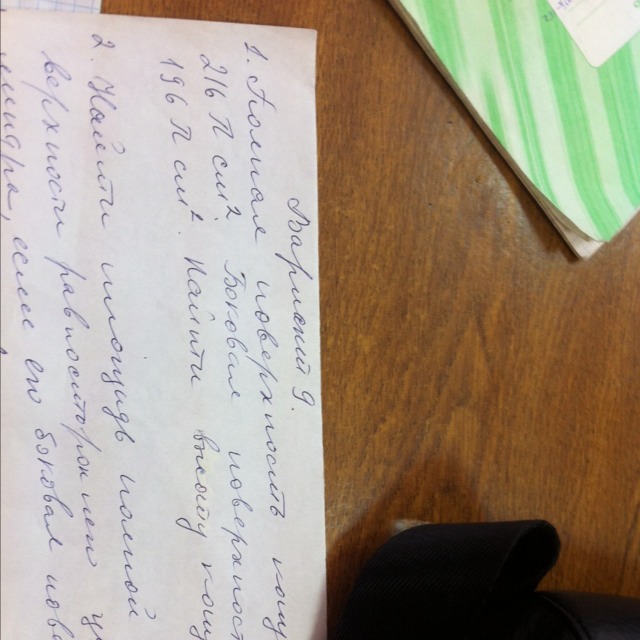 Вариант 9.
1. Полная поверхность кону
216 π см². Боковая поверхност
196 π см². Найти высоту кону
2. Найти площадь полной
верхности равносторонней ц
линдра, если его боковая пове